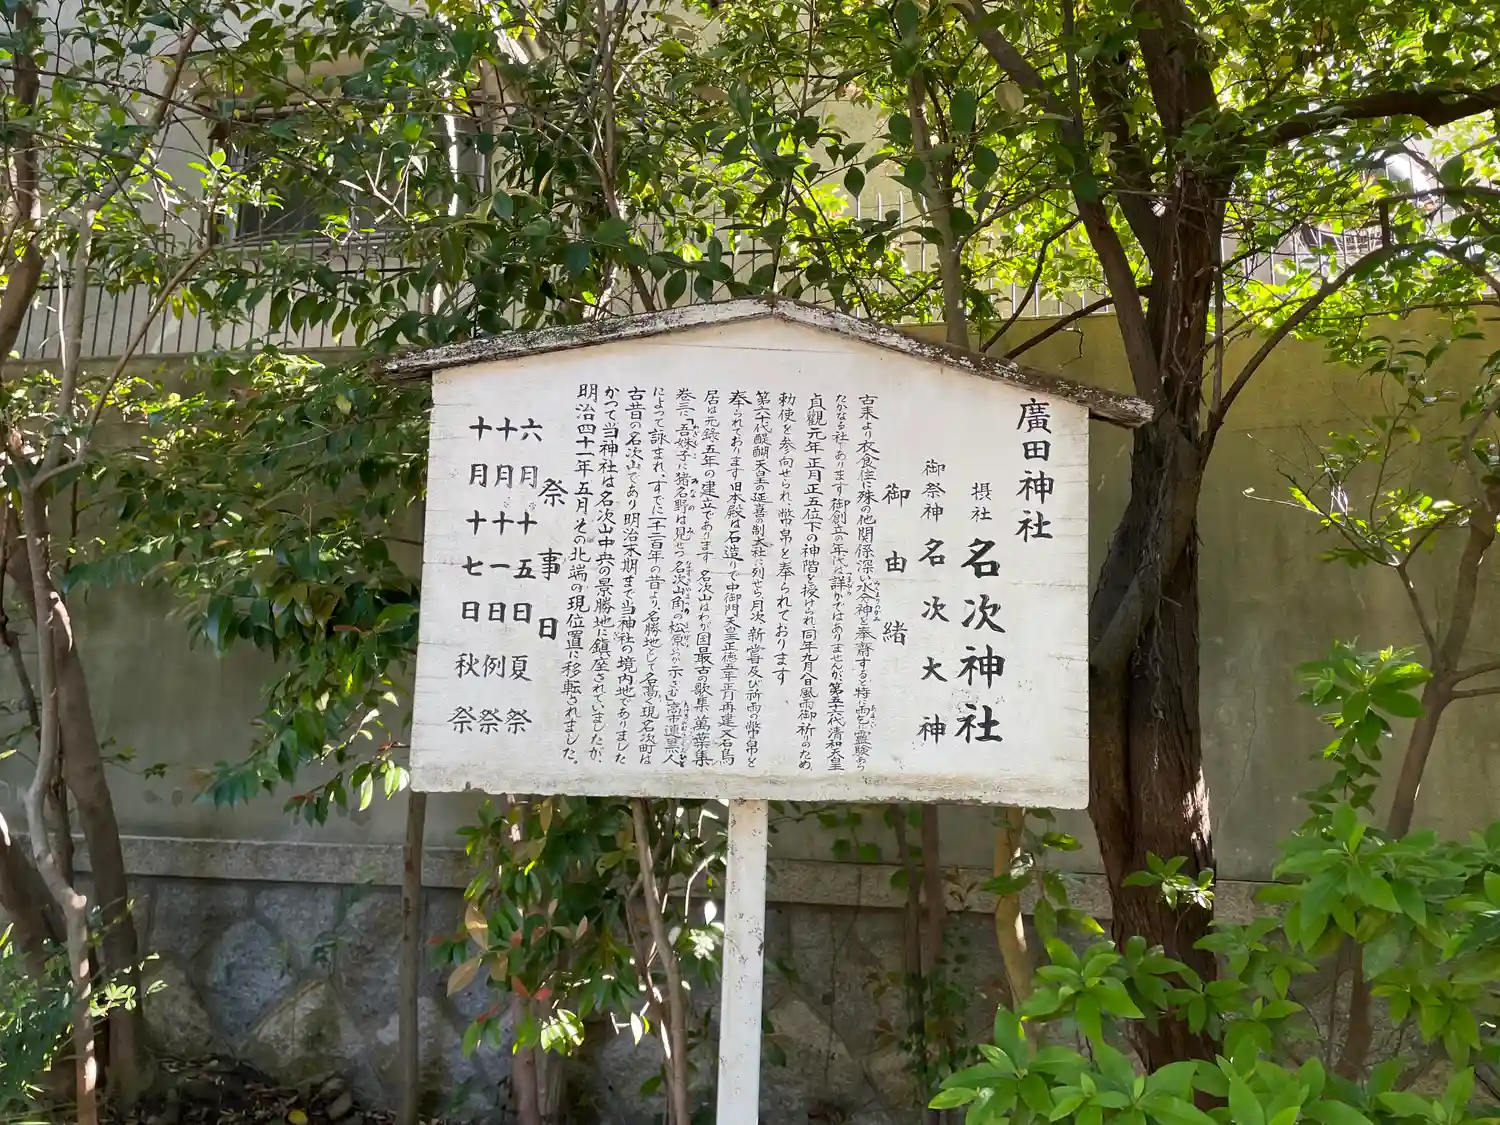 廣田神社
摂社 名次神社
御祭神 名次大神
御由緒
古来より衣食住に殊の他関係深い水分神を奉齋すると特に雨乞に霊験あら
たかなる社であります御創立の年代は詳かではありませんが、第五十六代清和天皇
貞觀元年正月正五位下の神階を授けられ同年九月八日風雨御祈のため
勅使を参向せられ幣帛を奉られております
第六十代醍醐天皇の延喜の制大社に列せら月次、新嘗及び祈雨の幣帛を
奉られております旧本殿は石造りで中御門天皇正徳五年正月再建又石鳥
居は元録五年の建立であります 名次山はわが国最古の歌集萬葉集
巻三に吾妹子に猪名野は見せつ名次山角の松原いつか示さむ(高市連黒人)
によって詠まれ、すでに一千二百年の昔より名勝地として名高く現名次町は
古昔の名次山であり明治末期まで当神社の境内地でありました
かつて当神社は名次山中央の景勝地に鎮座されていましたが、
明治四十一年五月その北端の現位置に移転されました。
祭事日
六月十五日 夏祭
十月十一日 例祭
十月十七日 秋祭